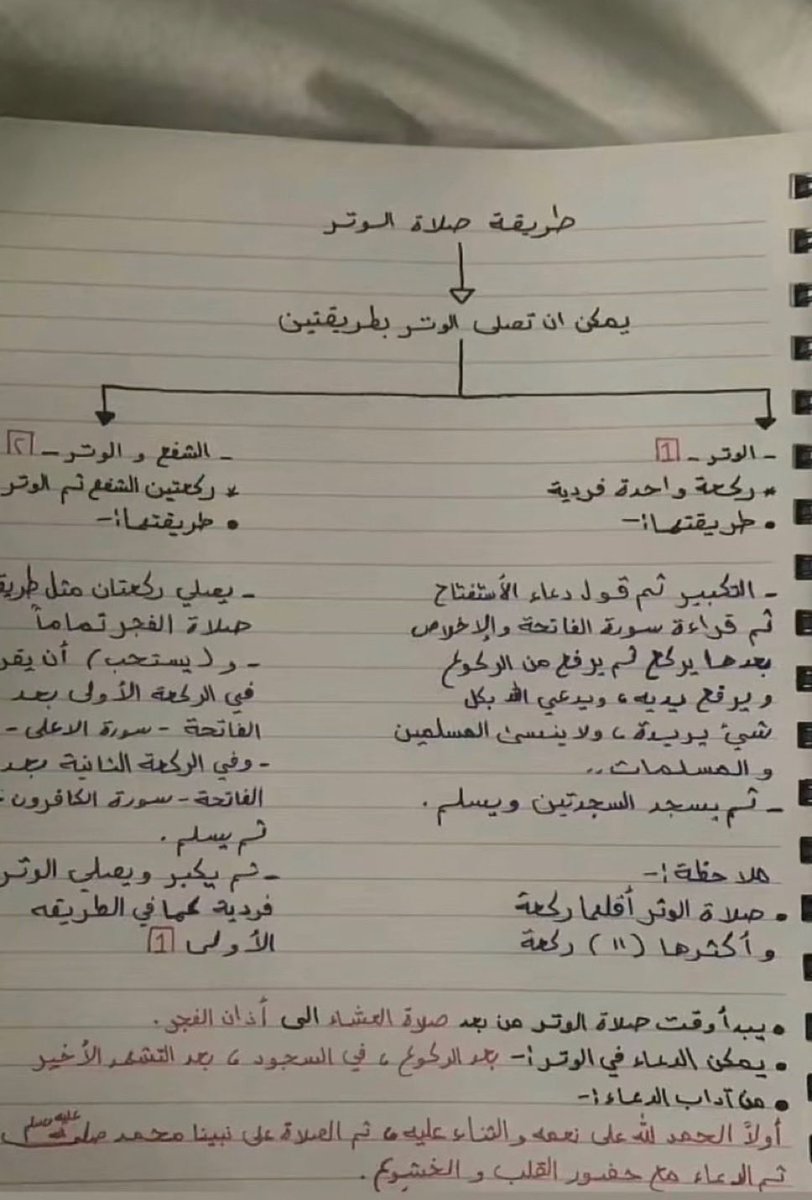 طريقة صلاة الوتر
يمكن ان تصلى الوتر بطريقتين
- الوتر - 1
* ركعة واحدة فردية
• طريقتها:-
- التكبير ثم قول دعاء الأستفتاح
ثم قراءة سورة الفاتحة والإخلاص
بعدها يركع ثم يرفع من الركوع
ويرفع يديه، ويدعي الله بكل
شيئ يريدة، ولا ينسى المسلمين
والمسلمات..
- ثم يسجد السجدتين ويسلم.
ملاحظة:-
• صلاة الوتر أقلها ركعة
وأكثرها (١١) ركعة
- الشفع والوتر - ٢
* ركعتين الشفع ثم الوتر
• طريقتها:-
- يصلي ركعتان مثل
صلاة الفجر تماماً
- و(يستحب) أن
في الركعة الأولى بعد
الفاتحة - سورة الاعلى -
- وفي الركعة الثانية بعد
الفاتحة - سورة الكافرون
ثم يسلم.
- ثم يكبر ويصلي الوتر
فردية كما في الطريقه
الأولى 1
• يبدأ وقت صلاة الوتر من بعد صلاة العشاء الى أذان الفجر.
• يمكن الدعاء في الوتر:- بعد الركوع، في السجود، بعد التشهد الأخير
• من آداب الدعاء:-
أولاً الحمد لله على نعمه والثناء عليه، ثم الصلاة على نبينا محمد صلى الله عليه وسلم
ثم الدعاء مع حضور القلب والخشوع.